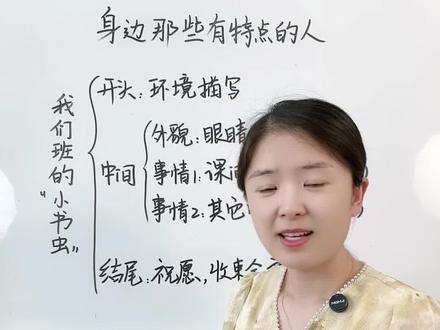 身边那些有特点的人
我们班的"小书虫"
开头：环境描写
中间
外貌：眼睛
事情1：课间
事情2：其它
结尾：祝愿，收束全